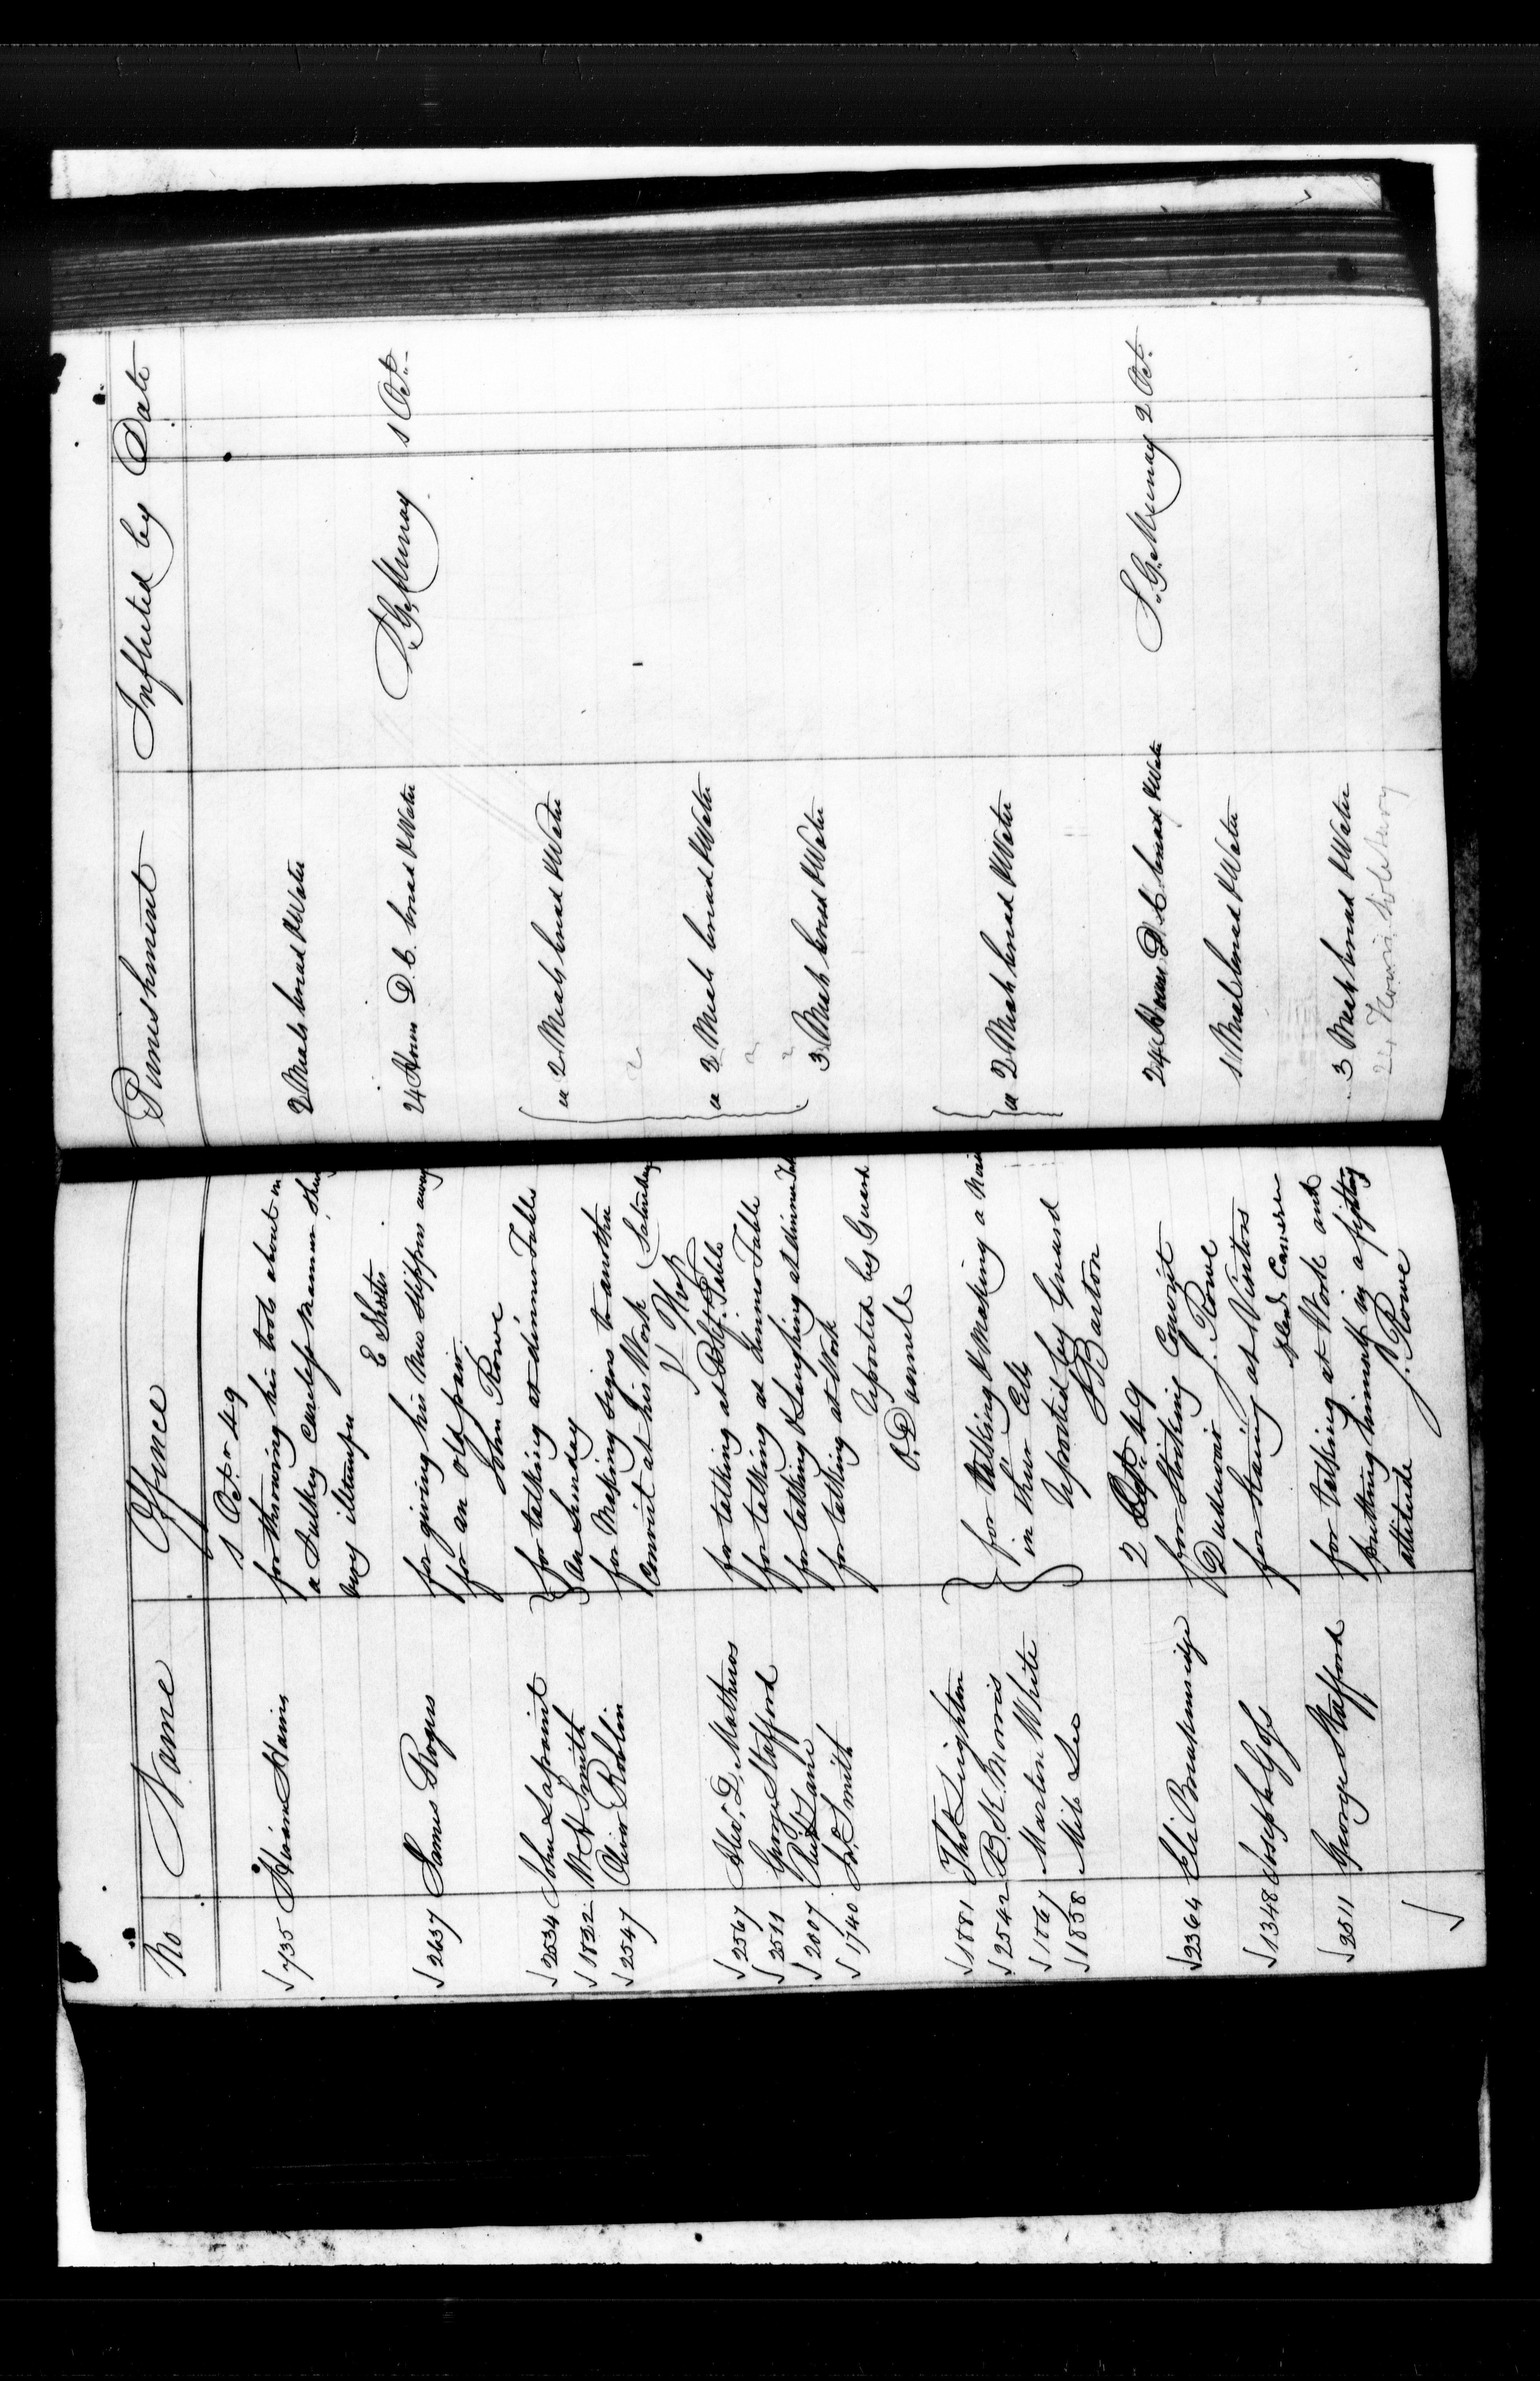 No Name Offence Punishment Inflicted by Date
1 Octr 49
735 Hiram Harris for throwing his tools about in 2 Meals bread & Water
a Sulky Careless manner
very illtemper
E Shutter
2637 James Rogers for giving his New Slippers away 24 Hours D.C. bread & Water S. G. Murray 1 Oct.
for an old pair
John Rowe
2534 John Lapoint for talking at dinner Table a 2 Meals bread & Water
1822 W H Smith on Sunday
2547 Oliver Roblin for Making signs to another
Convict at his Work Saturday
2567 Alexr. D. Mathews for talking at Bkf. Table a 2 Meals bread & Water
2511 George Stafford for talking at dinner Table
2007 Lane for talking & Laughing at dinner
1740 Smith for talking at Work 3 Meals bread & Water
Reported by Guard
O. Donnell
1881 Thos Leighton for talking & Making a
2542 B. K. Morris in their Cells a 2 Meals bread & Water
1867 Martin White reported by Guard
1858 Milo Lee Barton
2 Oct. 49
2364 Eli Breakenridge for Striking Convict 24 Hours D.C. bread & Water S. G. Murray 2 Oct.
Dunwoir J. Rowe
1348 Joseph Goff for Staring at Visitors 1 Meal bread & Water
2511 George Stafford for talking at Work and 3 Meals bread & Water
putting himself in a fighting 24 Hours Solitary
attitude J. Rowe